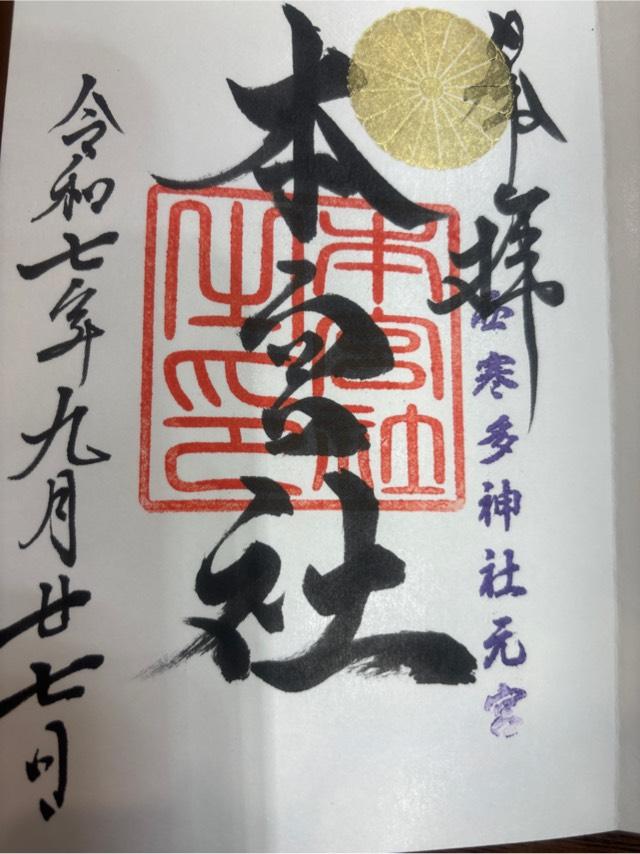 奉拝
西寒多神社元宮
本宮社
本宮社之印
令和七年九月廿七日